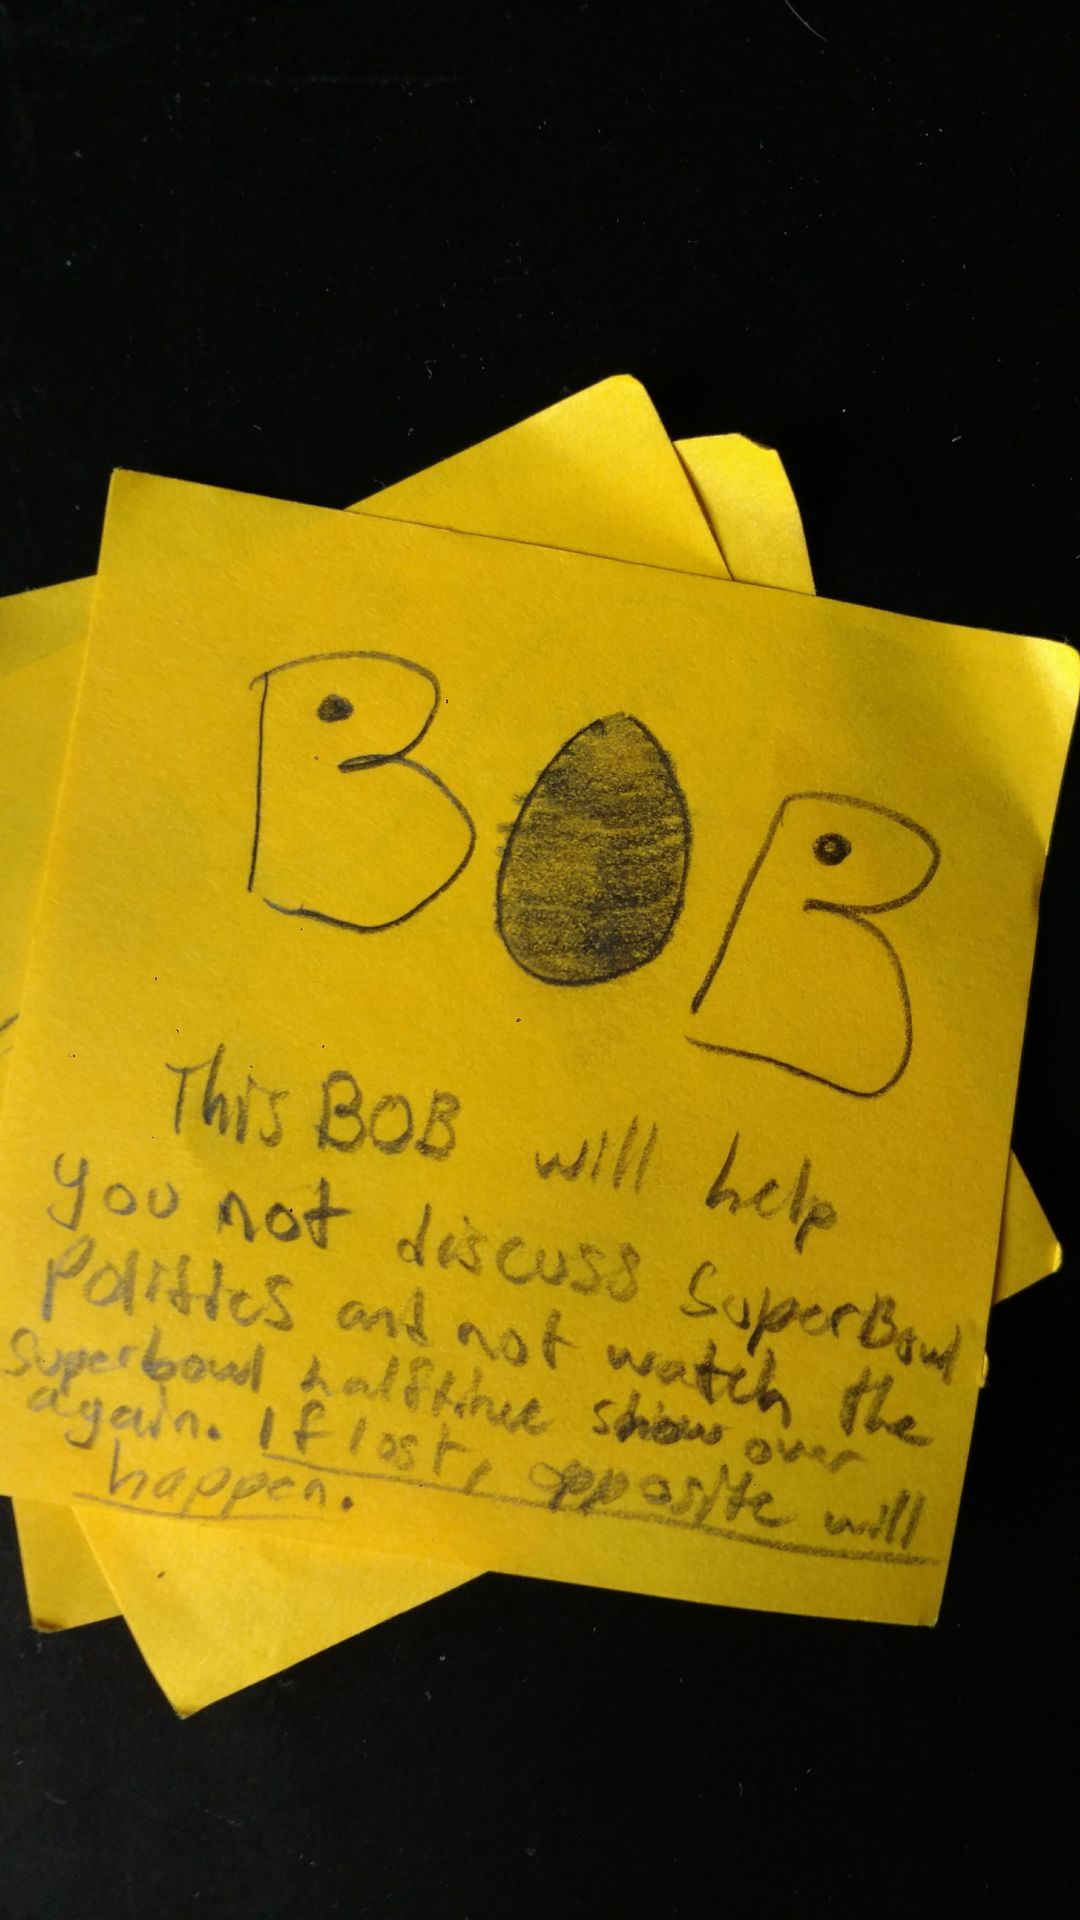 BOB
This BOB will help
you not discuss SuperBowl
Politics and not watch the
Superbowl halftime show over
again. If lost, opposite will
happen.